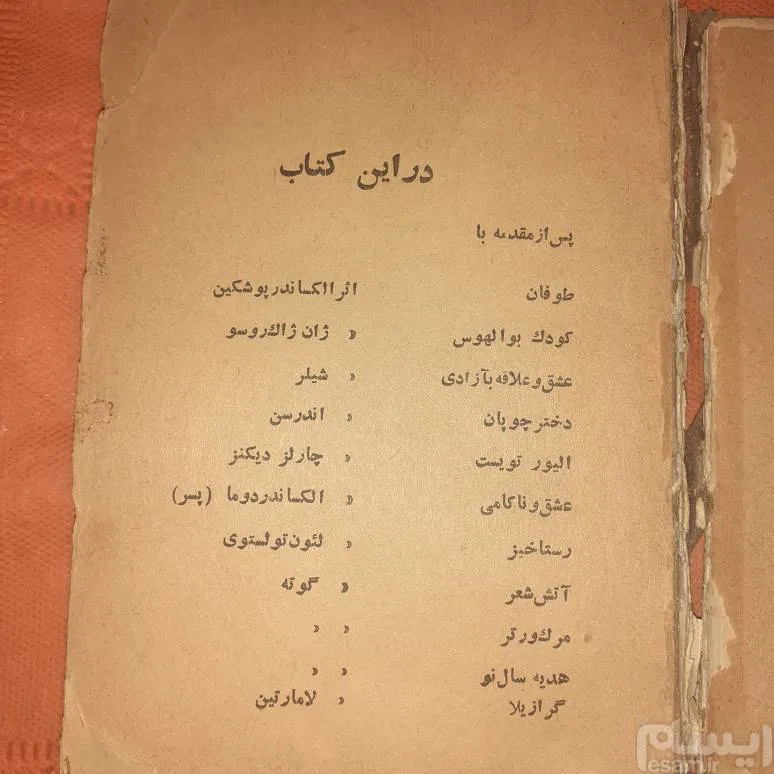 در این کتاب
پس از مقدمه با
طوفان اثر الکساندر پوشکین
کودك بوالهوس « ژان ژاك روسو
عشق و علاقه بآزادی « شیلر
دختر چوپان « اندرسن
الیور تویست « چارلز دیکنز
عشق و ناکامی « الکساندر دوما (پسر)
رستاخیز « لئون تولستوی
آتش شعر « گوته
مرك ورتر « «
هدیه سال نو « «
گرازیلا « لامارتین
ایسام
esam.ir